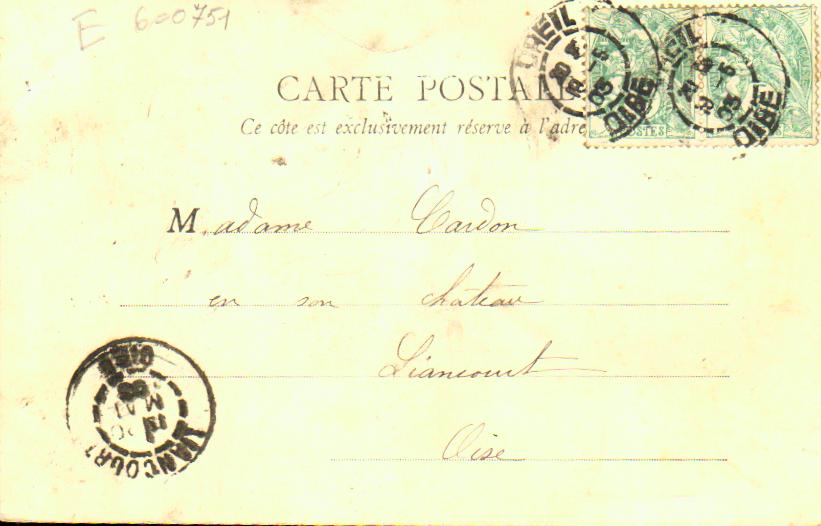 E 600751
CARTE POSTALE
Ce côte est exclusivement réserve à l'adre
CREIL
OISE
CREIL
OISE
POSTES
M.adame Cardon
en son château
Liancourt
Oise
LIANCOURT
OISE
MAI